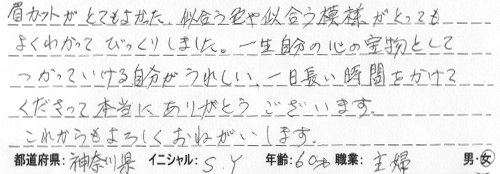 眉カットがとてもよかった、似合う色や似合う模様がとっても
よくわかってびっくりしました。一生自分の心の宝物として
つかっていける自分がうれしい、一日長い時間をかけて
くださって本当にありがとうございます。
これからもよろしくおねがいします。
都道府県:神奈川県 イニシャル:S.Y 年齢:60才 職業:主婦 男・女